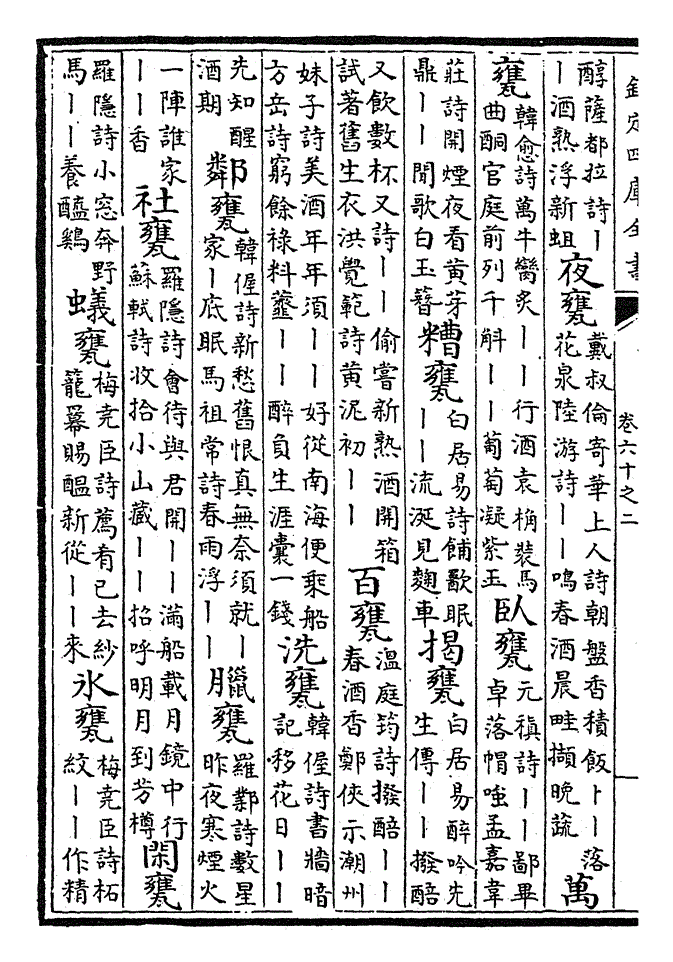 欽定四庫全書
卷六十之二
醇薩都拉詩丨
丨酒熟浮新蛆
夜甕
戴叔倫寄華上人詩朝盤香積飯卜丨落
花泉陸游詩丨丨鳴春酒晨畦擷晚蔬
萬
甕
韓愈詩萬牛臠炙丨丨行酒袁桷裝馬
曲酮官庭前列千斛丨丨葡萄凝紫玉
臥甕
元稹詩丨丨鄙畢
卓落帽嗤孟嘉韋
莊詩開煙夜看黃芽
鼎丨丨閒歌白玉簪
糟甕
白居易詩餔歠眠
丨丨流涎見麴車
揭甕
白居易醉吟先
生傳丨丨撥醅
又飲數杯又詩丨丨偷嘗新熟酒開箱
試著舊生衣洪覺範詩黃泥初丨丨
百甕
溫庭筠詩撥醅丨丨
春酒香鄭俠示潮州
妹子詩美酒年年須丨丨好從南海便乘船
方岳詩窮餘祿料虀丨丨醉負生涯囊一錢
洗甕
韓偓詩書牆暗
記移花日丨丨
先知醒
酒期
鄰甕
韓偓詩新愁舊恨真無奈須就丨
家丨底眠馬祖常詩春雨浮丨丨
臘甕
羅鄴詩數星
昨夜寒煙火
一陣誰家
丨丨香
社甕
羅隱詩會待與君開丨丨滿船載月鏡中行
蘇軾詩收拾小山藏丨丨招呼明月到芳樽
閑甕
羅隱詩小窓奔野
馬丨丨養醯鷄
蟻甕
梅堯臣詩薦肴已去紗
籠羃賜醞新從丨丨來
氷甕
梅堯臣詩柘
紋丨丨作精